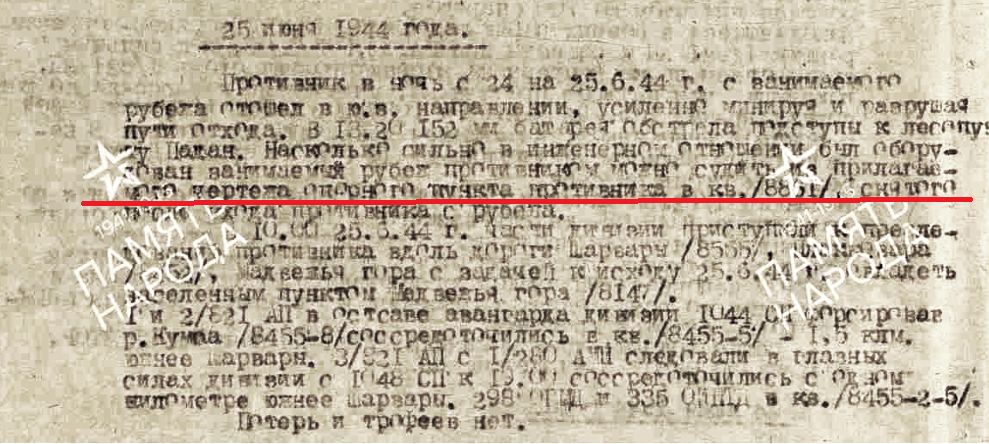 25 июня 1944 года.
Противник в ночь с 24 на 25.6.44 г. с занимаемого
рубежа отошел в ю.в. направлении, усиленно минируя и разрушая
пути отхода. В 18.20 152 мм батарея обстреляла подступы к лесопу
ту Падан. Насколько сильно в инженерном отношении был обору-
дован занимаемый рубеж противником можно судить из прилагае-
мого чертежа опорного пункта противника в кв./8851/, снятого
после ухода противника с рубежа.
10.00 25.6.44 г. части дивизии приступили к пресле-
дованию противника вдоль дороги Шарвары /8555/,
Медвежья гора с задачей к исходу 25.6.44 г. овладеть
населенным пунктом Медвежья гора /8147/.
1 и 2/821 АП в составе авангарда дивизии 1044 СП форсировав
р.Кумса /8455-8/сосредоточились в кв./8455-5/ - 1,5 клм.
южнее Шарвары. 3/821 АП с 1/280 АМП следовали в главных
силах дивизии с 1048 СП к 15.00 сосредоточились с одном
километре южнее Шарвары. 298 ОИПТД и 336 в кв./8455-2-5/.
Потерь и трофеев нет.
ПАМЯТЬ
НАРОДА
ПАМЯТЬ
НАРОДА